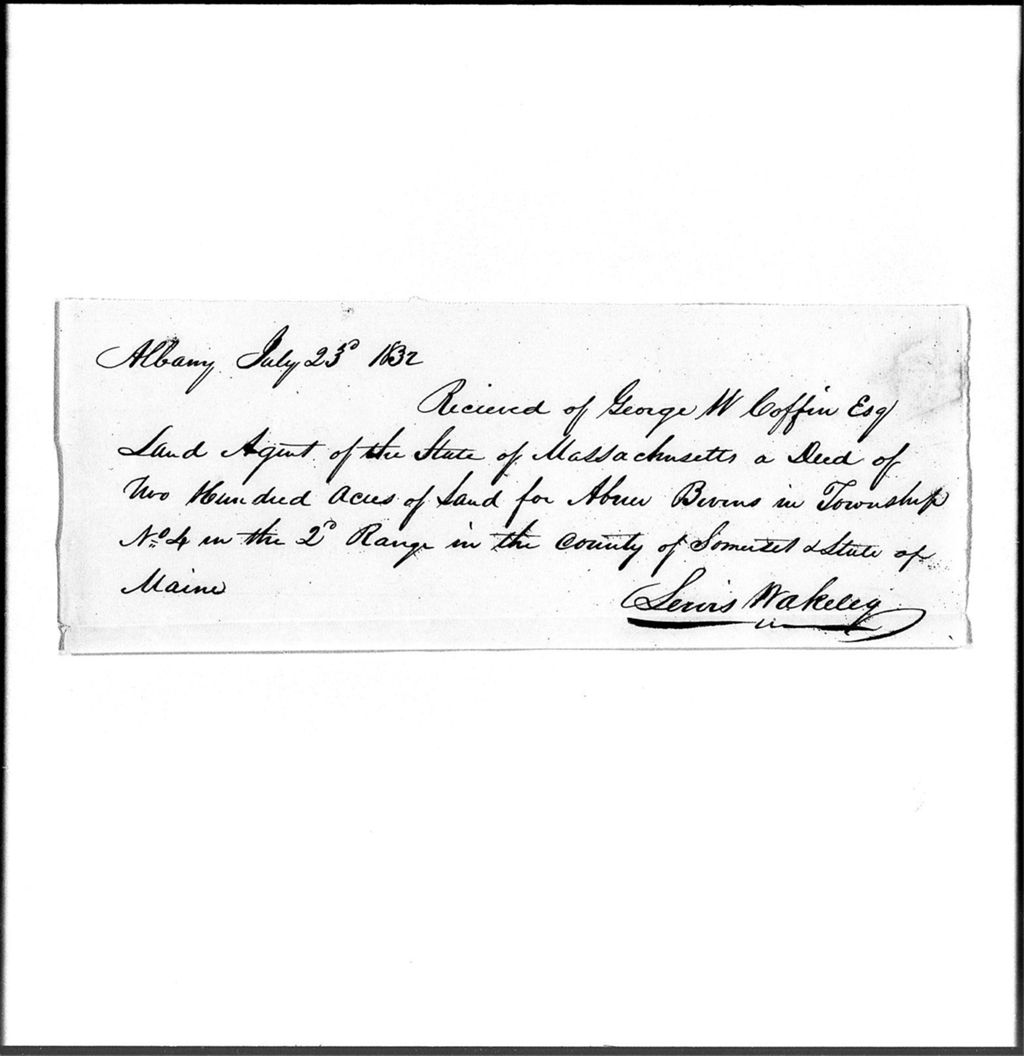 Albany July 23d 1832
Recieved of George W Coffin Esq
Land Agent of the State of Massachusetts a Deed of
Two Hundred Acres of Land for Abner Bevens in Township
No 4 in the 2d Range in the County of Somerset & State of
Maine
Lewis Wakeley